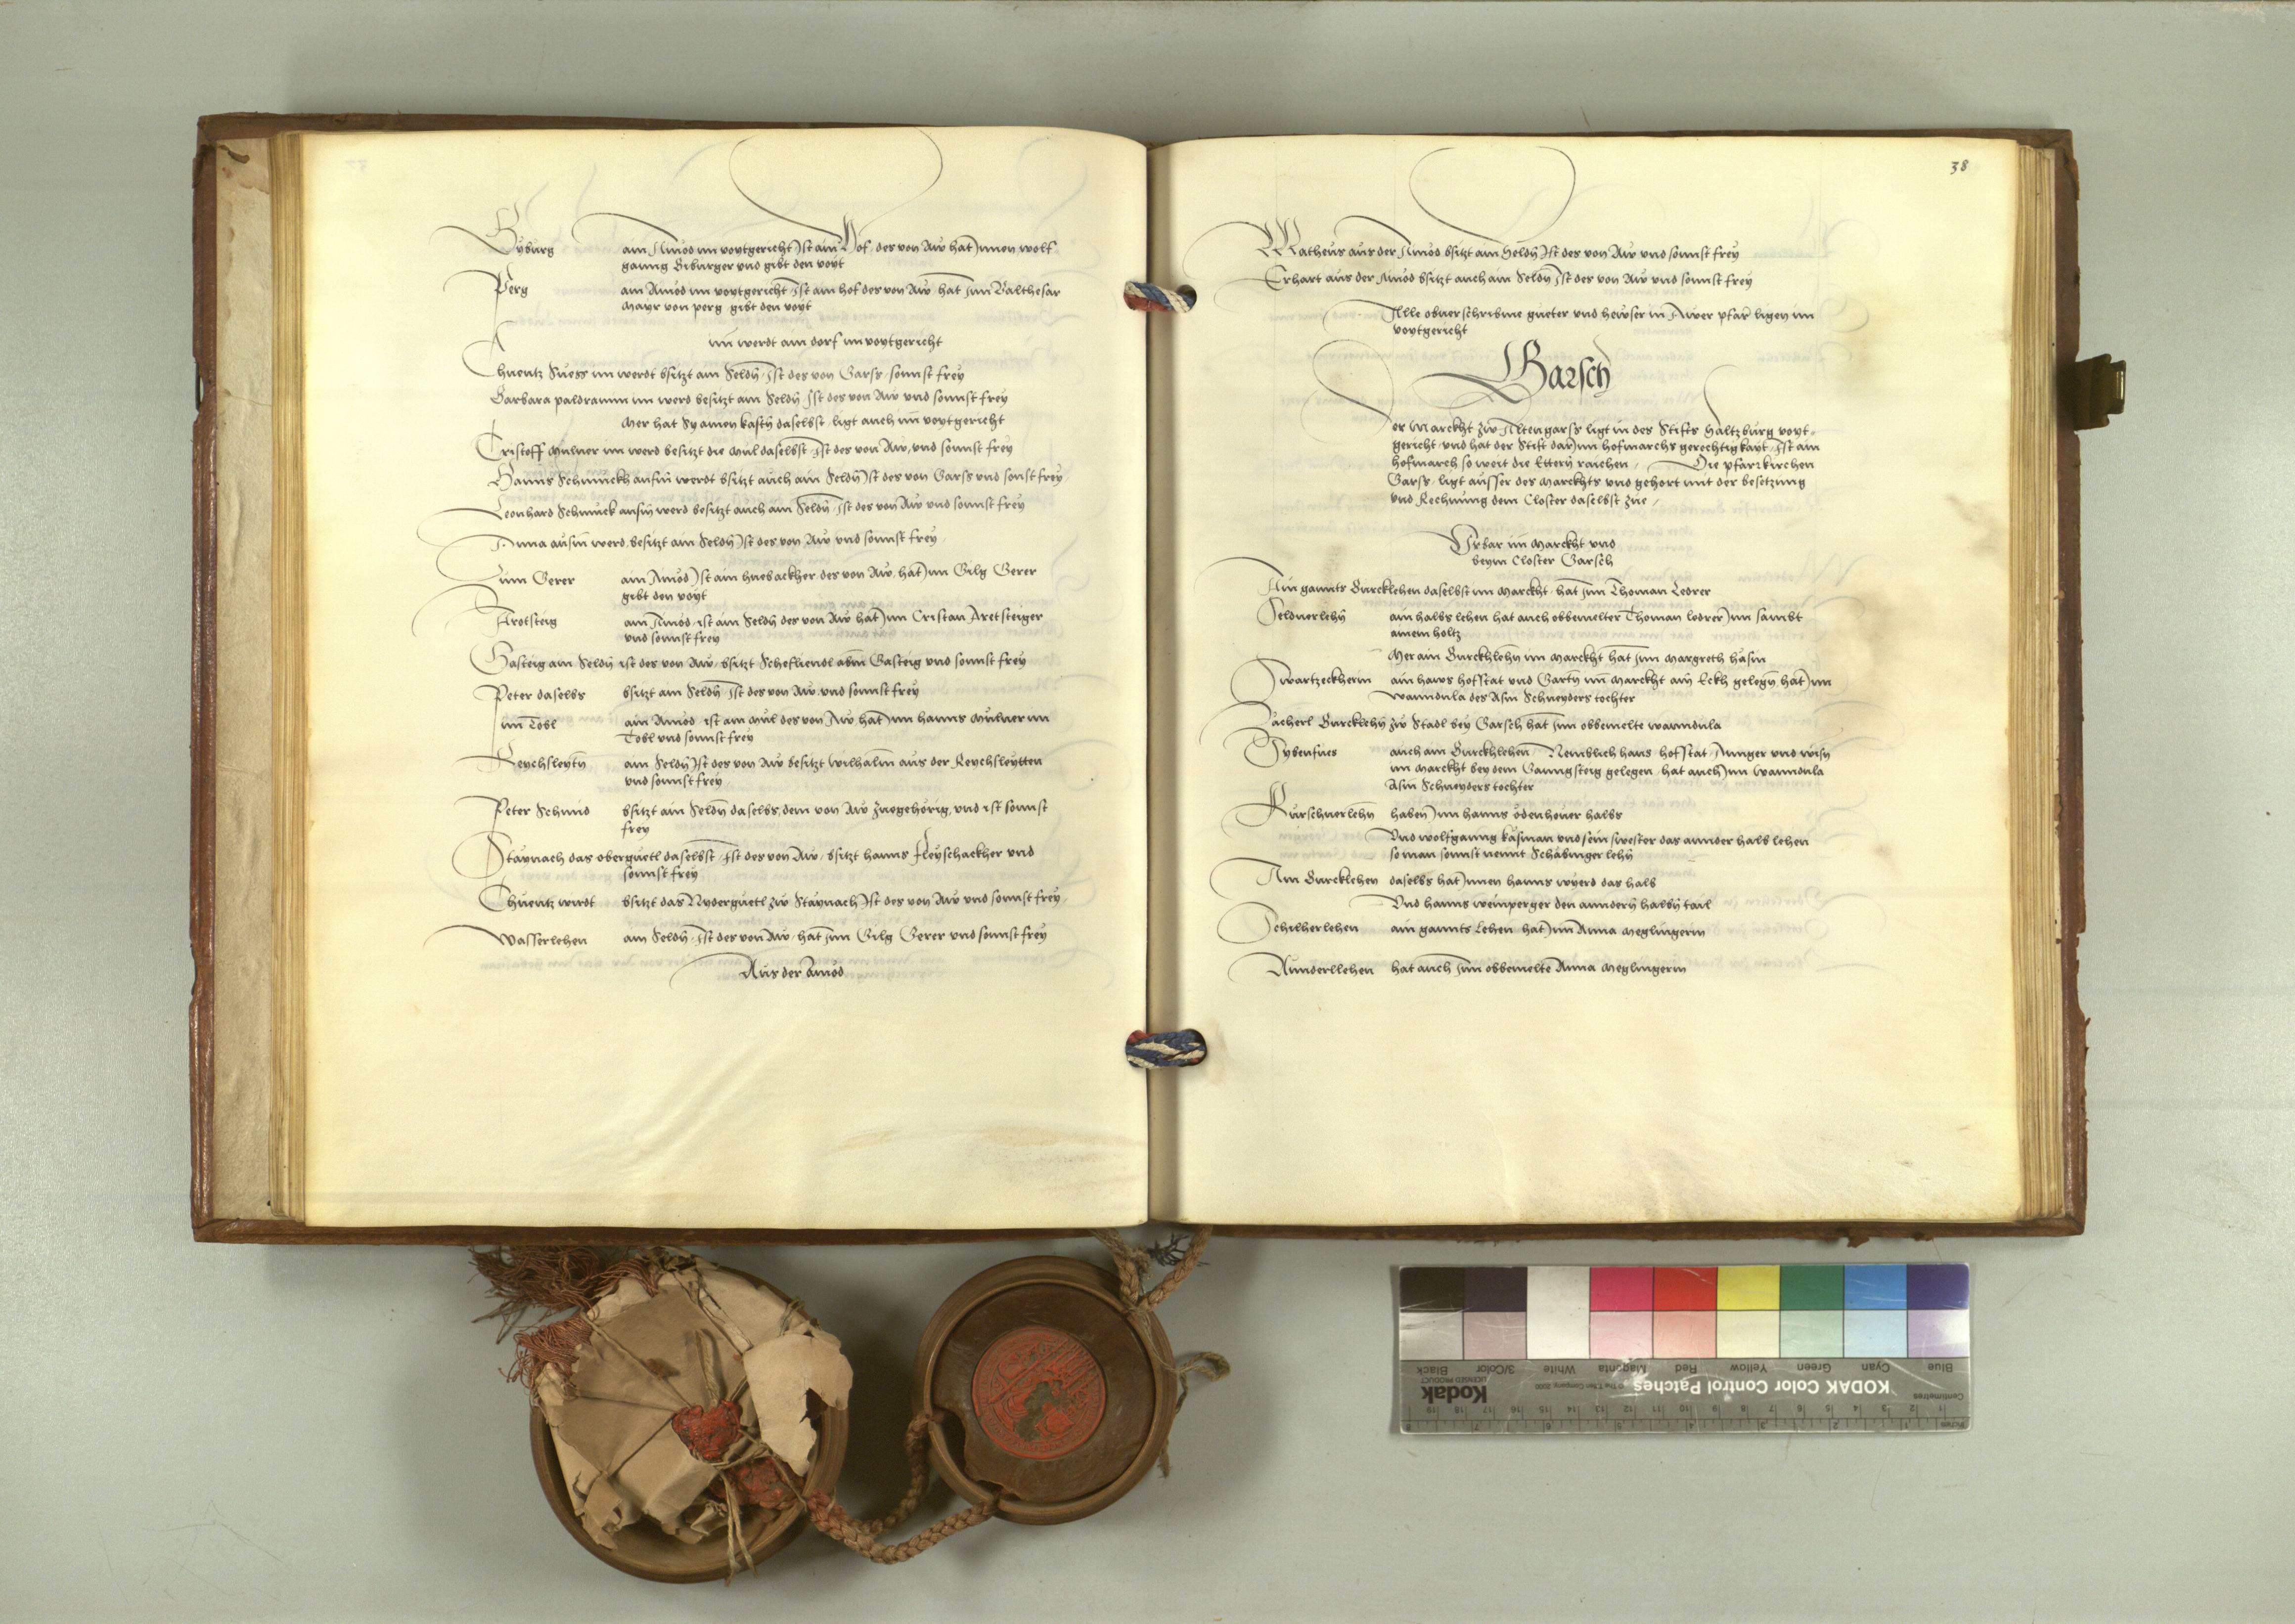 Byburg ain Ainöd im voytgericht Ist ain Hof des von Aw hat Innen wolf
ganng Biburger vnd gibt den voyt
Perg ain Ainöd im voytgericht Ist ain hof des von Aw hat Inn Balthesar
Mayr von perg gibt den voyt
im werdt ain dorf im voytgericht
Chuentz Suess im werdt bsitzt ain Seldn Ist des von Garss sonnst frey
Barbara paldramin im werd besitzt ain Seldn Ist des von Aw vnd sonnst frey
Mer hat Sy ainen kastn daselbst ligt auch im voytgericht
Cristoff Mulner im werd besitzt die Mul daselbst Ist des von Aw vnd sonnst frey
Hanns Schmückh ausm werdt bsitzt auch ain Seldn Ist des von Garss vnd sonst frey
Leonhard Schmück ausm werd besitzt auch ain Seldn Ist des von Aw vnd sonnst frey
Anna ausm werd besitzt ain Seldn Ist des von Aw vnd sonnst frey
Zum Gerer ain Ainöd Ist ain huebackher des von Aw hat Inn Gilg Gerer
gibt den voyt
Arotsteig ain Ainöd ist ain Seldn des von Aw hat Inn Cristan Aretsteiger
vnd sonnst frey
Gasteig ain Seldn ist des von Aw bsitzt Schefliendl abm Gasteig vnd sonnst frey
Peter daselbs bsitzt ain Seldn Ist des von Aw vnd sonnst frey
im Tobl ain Ainöd ist ain Mül des von Aw hat Inn hanns Mülner im
Tobl vnd sonnst frey
Reychsleytn ain Seldn Ist des von Aw besitzt wilhalm aus der Reychsleytten
vnd sonnst frey
Peter Schmid bsitzt ain Seldn daselbs, dem von Aw zuegehörig, vnd ist sonnst
frey
Staynach das oberguetl daselbst Ist des von Aw bsitzt hanns fleyschackher vnd
sonnst frey
Chuentz wirdt bsitzt das Nyderguetl zw Staynach Ist des von Aw vnd sonnst frey
Wasserlehen ain Seldn Ist des von Aw hat Inn Gilg Gerer vnd sonnst frey
Aus der Ainöd
38
Matheus aus der Ainöd bsitzt ain Seldn Ist des von Aw vnd sonnst frey
Erhart aus der Ainöd bsitzt auch ain Seldn Ist des von Aw vnd sonnst frey
Alle obuerschribne güeter vnd hewser in Awer pfarr ligen im
voytgericht
Garsch
Der Marckht zw Alltengarss ligt in des Stifts Saltzburg voyt-
gericht vnd hat der Stift darInn hofmarchs gerechtigkayt Ist ain
hofmarch so weit die Ettern raichen Die pfarrkirchen
Garss ligt ausser des Marckhts vnd gehort mit der besetzung
vnd Rechnung dem Closter daselbst zue
Vrbar im Marckht vnd
beym Closter Garsch
Ain gannts Burcklehen daselbst im Marckht hat Inn Thoman Ledrer
Seldnerlehn ain halbs lehen hat auch obbemelter Thoman ledrer Inn sambt
ainem holtz
Mer ain Burckhlehn im Marckht hat Inn Margreth häsin
Swartzeckherin ain haws hofstat vnd Gartn im Marckht am Eckh gelegn hat Inn
Wanndula des Asm Schneyders tochter
Zächerl Burcklehn zw Stadl bey Garsch hat Inn obbemelte wanndula
Sybenfues auch ain Burckhlehen Nemblich haus hofstat Annger vnd wisn
im Marckht bey dem Ganngsteig gelegen hat auch Inn Wanndula
Asm Schneyders tochter
Kürschnerlehn haben Inn hanns ödenhouer halbs
Vnd wolfganng käsman vnd sein swester das annder halb lehen
so man sonnst nennt Schabinger lehn
Ain Burcklehen daselbs hat Innen hanns wyerd das halb
Vnd hanns weinperger den anndern halbn tail
Schilherlehen ain gannts Lehen hat Inn Anna Meglingerin
Aunderllehen hat auch Inn obbemelte Anna Meglingerin
Blue Cyan Green Yellow Red Magenta White 3/Color Black
KODAK Color Control Patches
Kodak
LICENSED PRODUCT
Centimetres
Inches